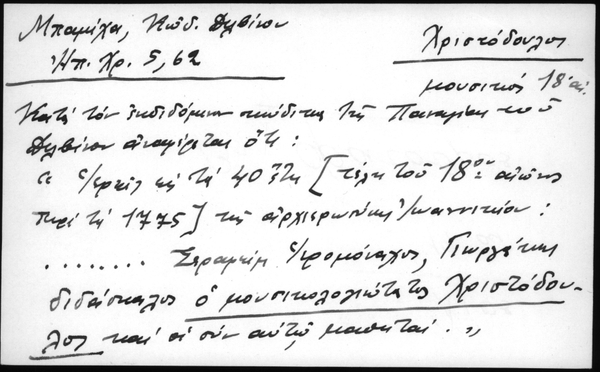 Μπαμίχα, Κώδ. Δελβίνου
Ἠπ. Χρ. 5, 62
Χριστόδουλος
μουσικός 18 αἰ.
Κατά τόν ἐκδιδόμενον κώδικα τῆς Παναγίας τοῦ
Δελβίνου ἀναφέρεται ὅτι:
" τά 40 ἔτη [τέλη τοῦ 18ου αἰῶνος
περί τά 1775] τῆς ἀρχιερωσύνης Ἰωαννικίου:
........ Σεραφείμ ἱερομόναχος, Γεωργάκης
διδάσκαλος ὁ μουσικολογιώτατος Χριστόδου-
λος καί οἱ σύν αὐτῷ μαθηταί. "